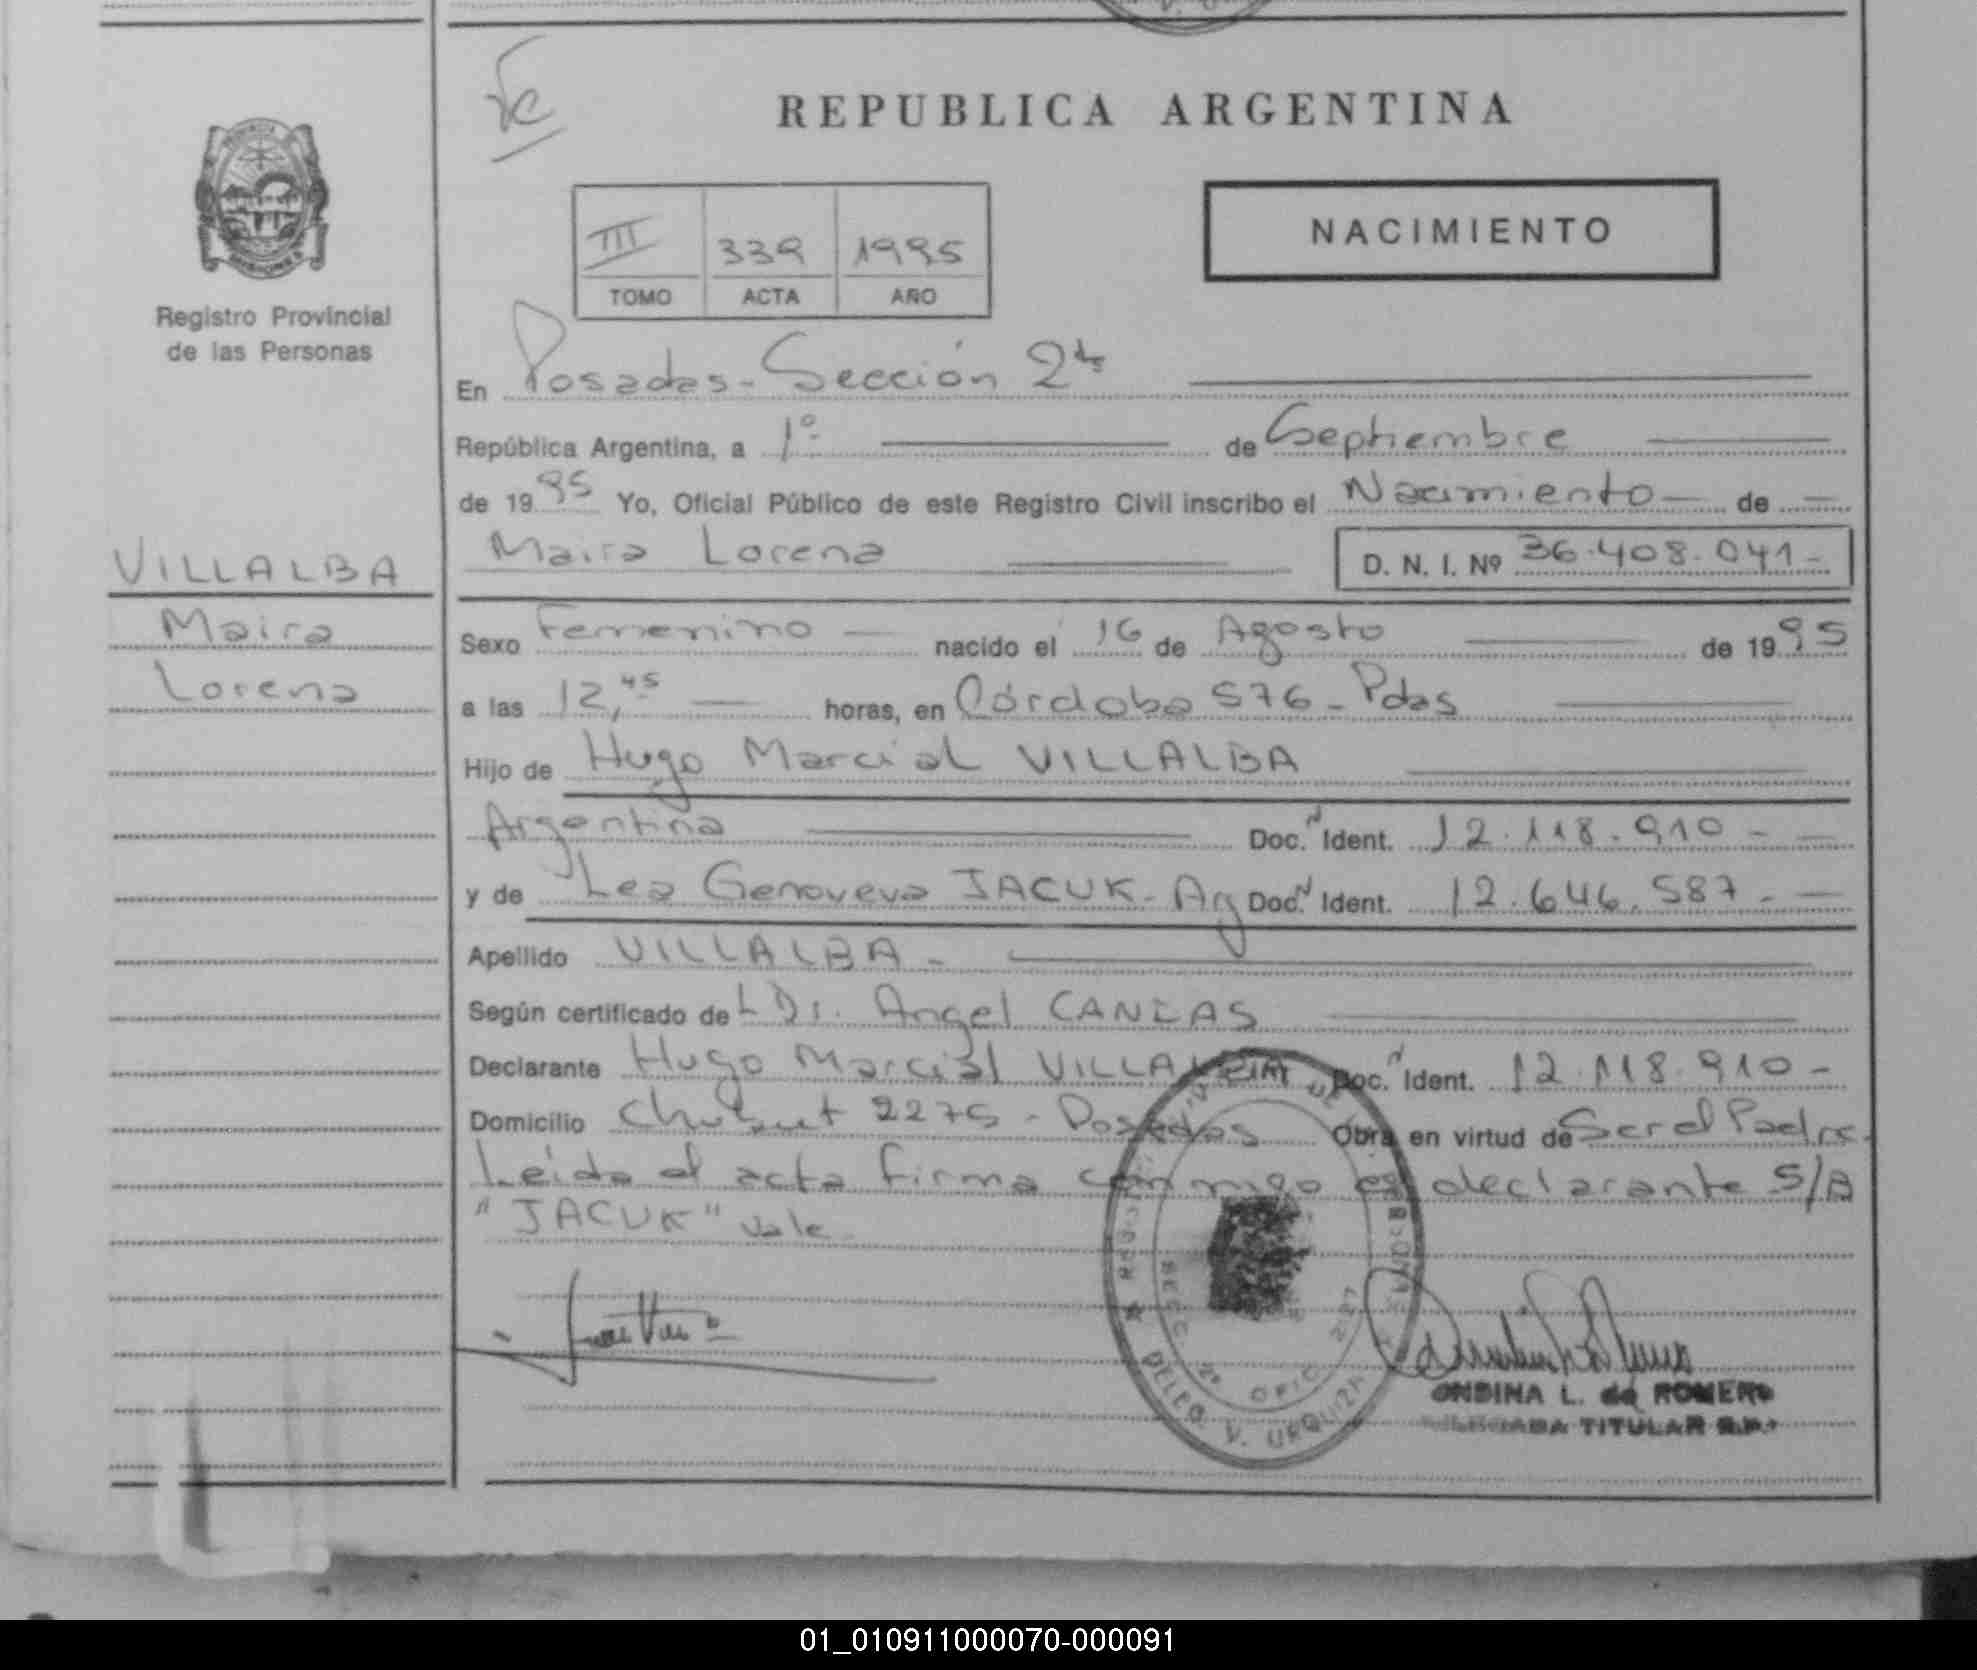 REPUBLICA ARGENTINA
NACIMIENTO
III 339 1995
TOMO ACTA AÑO
Registro Provincial
de las Personas
VILLALBA
Maira
Lorena
En Posadas - Sección 2da
República Argentina, a 1º de Septiembre
de 1995 Yo, Oficial Público de este Registro Civil inscribo el Nacimiento de
Maira Lorena D. N. I. Nº 36.408.041-
Sexo Femenino nacido el 16 de Agosto de 1995
a las 12,45 horas, en Córdoba 576 - Pdas
Hijo de Hugo Marcial VILLALBA
Argentina Doc. N Ident. 12.118.910-
y de Lea Genoveva JACUK - Arg Doc. N Ident. 12.646.587-
Apellido VILLALBA -
Según certificado de L Dr. Angel
Declarante Hugo Marcial VILLALBA Doc. N Ident. 12.118.910-
Domicilio Chubut 2275 - Posadas Obra en virtud de Ser el Padre.
Leída el acta firma conmigo el declarante S/B
"JACUK" Vale
SECC. 2º OFIC. 227
DELEG. V. URQUIZA
ONDINA L. de ROMERO
TITULAR R.P.
01_010911000070-000091